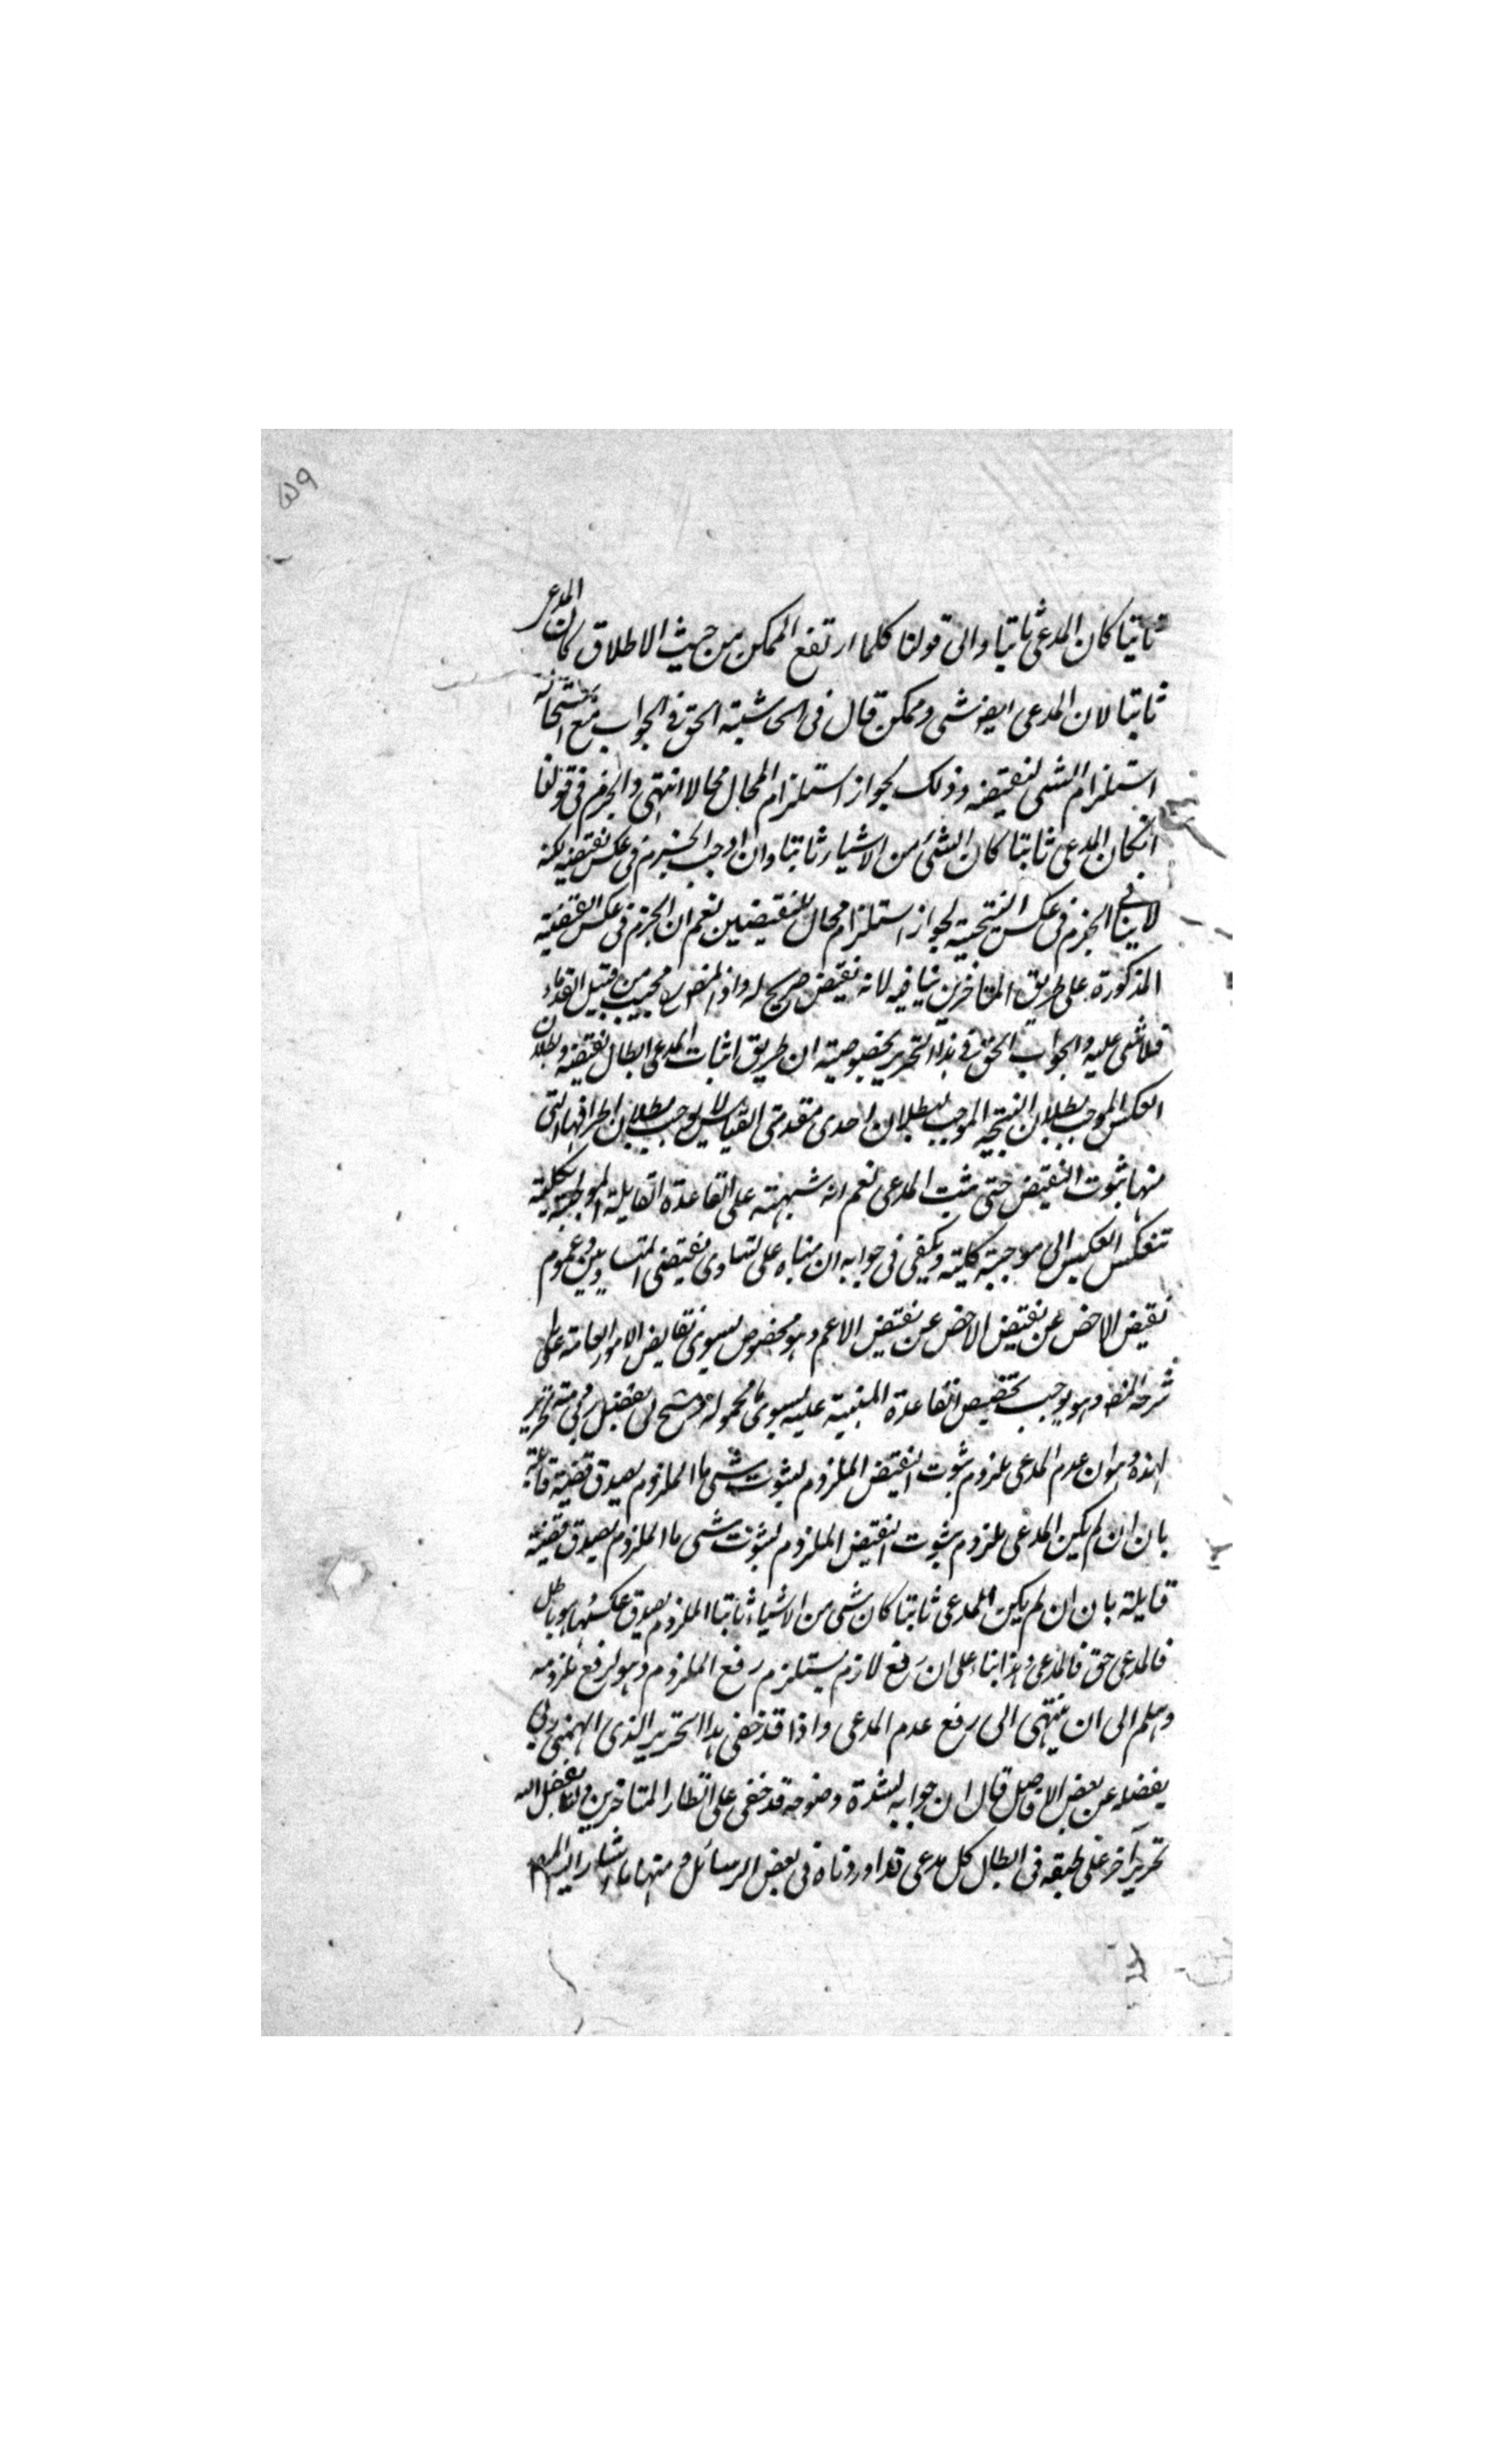 ۵۹
ثابتا كان المدعى ثابتا والى قولنا كلما ارتفع الممكن من حيث الاطلاق كان المدعى
ثابتا لان المدعى ايضا شى وممكن قال فى الحاشية الحق فى الجواب منع استحالة
استلزام الشى لنقيضه وذلك لجواز استلزام المحال محالا انتهى والجزم فى قولنا
انكان المدعى ثابتا كان الشئ من الاشياء ثابتا وان اوجب الجزم فى عكس نقيضه لكنه
لا ينافى الجزم فى عكس النتيجة لجواز استلزام محال للنقيضين نعم ان الجزم فى عكس القضية
المذكورة على طريق المتاخرين ينافيه لانه نقيض صريح له واذ المصنف مجيب من قبيل القدماء
فلا شى عليه والجواب الحق فى هذا التحرير بخصوصيته ان طريق اثبات المدعى ابطال نقيضه وبطلان
العكس الموجب لبطلان النتيجة الموجب لبطلان احدى مقدمتى القياس لا يوجب بطلان اطرافها التى
منها ثبوت النقيض حتى يثبت المدعى نعم انه شبهته على القاعدة القايلة الموجبة الكلية
تنعكس العكس الى موجبة كلية ويكفى فى جوابه ان مبناه على تساوى نقيضى المتساويين وعموم
نقيض الاخص عن نقيض الاخص عن نقيض الاعم وهو مخصوص بسوى نقايض الامور العامة على ما
شرحه المصنف وهو يوجب تخصيص القاعدة المبنية عليه بسوى ما محموله وسنح لى بفضل ربى منه تحرير
لهذه وهو ان عدم المدعى ملزوم ثبوت النقيض الملزوم لثبوت شى ما الملزوم لصدق قضية قايلة
بان ان لم يكن المدعى ملزوم ثبوت النقيض الملزوم لثبوت شى ما الملزوم لصدق قضية
قايلة بان ان لم يكن المدعى ثابتا كان شى من الاشياء ثابتا الملزوم لصدق عكسها وهو باطل
فالمدعى حق فالمدعى وهذا بناء على ان رفع لازم يستلزم رفع الملزوم وهو لرفع ملزومه
وهلم الى ان ينتهى الى رفع عدم المدعى واذا قد خفى هذا التحرير الذى الهمنى ربى
بفضله عن بعض الافاضل قال ان جوابه لشدة وضوحه قد خفى على انظار المتاخرين ولنا بفضل الله
تحرير آخر على طبقه فى ابطال كل مدعى قد اوردناه فى بعض الرسائل ومنها ما اشار اليه